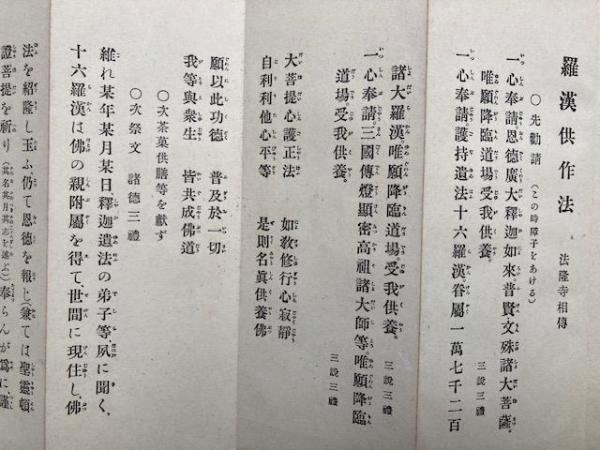 羅漢供作法　法隆寺相傳
○先勸請（この時障子をあける）
一心奉請恩德廣大釋迦如來普賢文殊諸大菩薩。
唯願降臨道場受我供養。　三說三禮
一心奉請護持遺法十六羅漢眷屬一萬七千二百
諸大羅漢唯願降臨道場。受我供養。　三說三禮
一心奉請三國傳燈顯密高祖諸大師等。唯願降臨
道場受我供養。　三說三禮
大菩提心護正法　如敎修行心寂靜
自利利他心平等　是則名眞供養佛
願以此功德　普及於一切
我等與衆生　皆共成佛道
○次茶菓供膳等を獻ず
○次祭文　諸德三禮
維れ某年某月某日、釋迦遺法の弟子等、夙に聞く、
十六羅漢は佛の親附屬を得て、世間に現住し、佛
法を紹隆し玉ふ、仍て恩德を報じ（兼ては聖靈頓
證菩提を祈り（某名某月某志を述ぶ）奉らんが爲に、謹